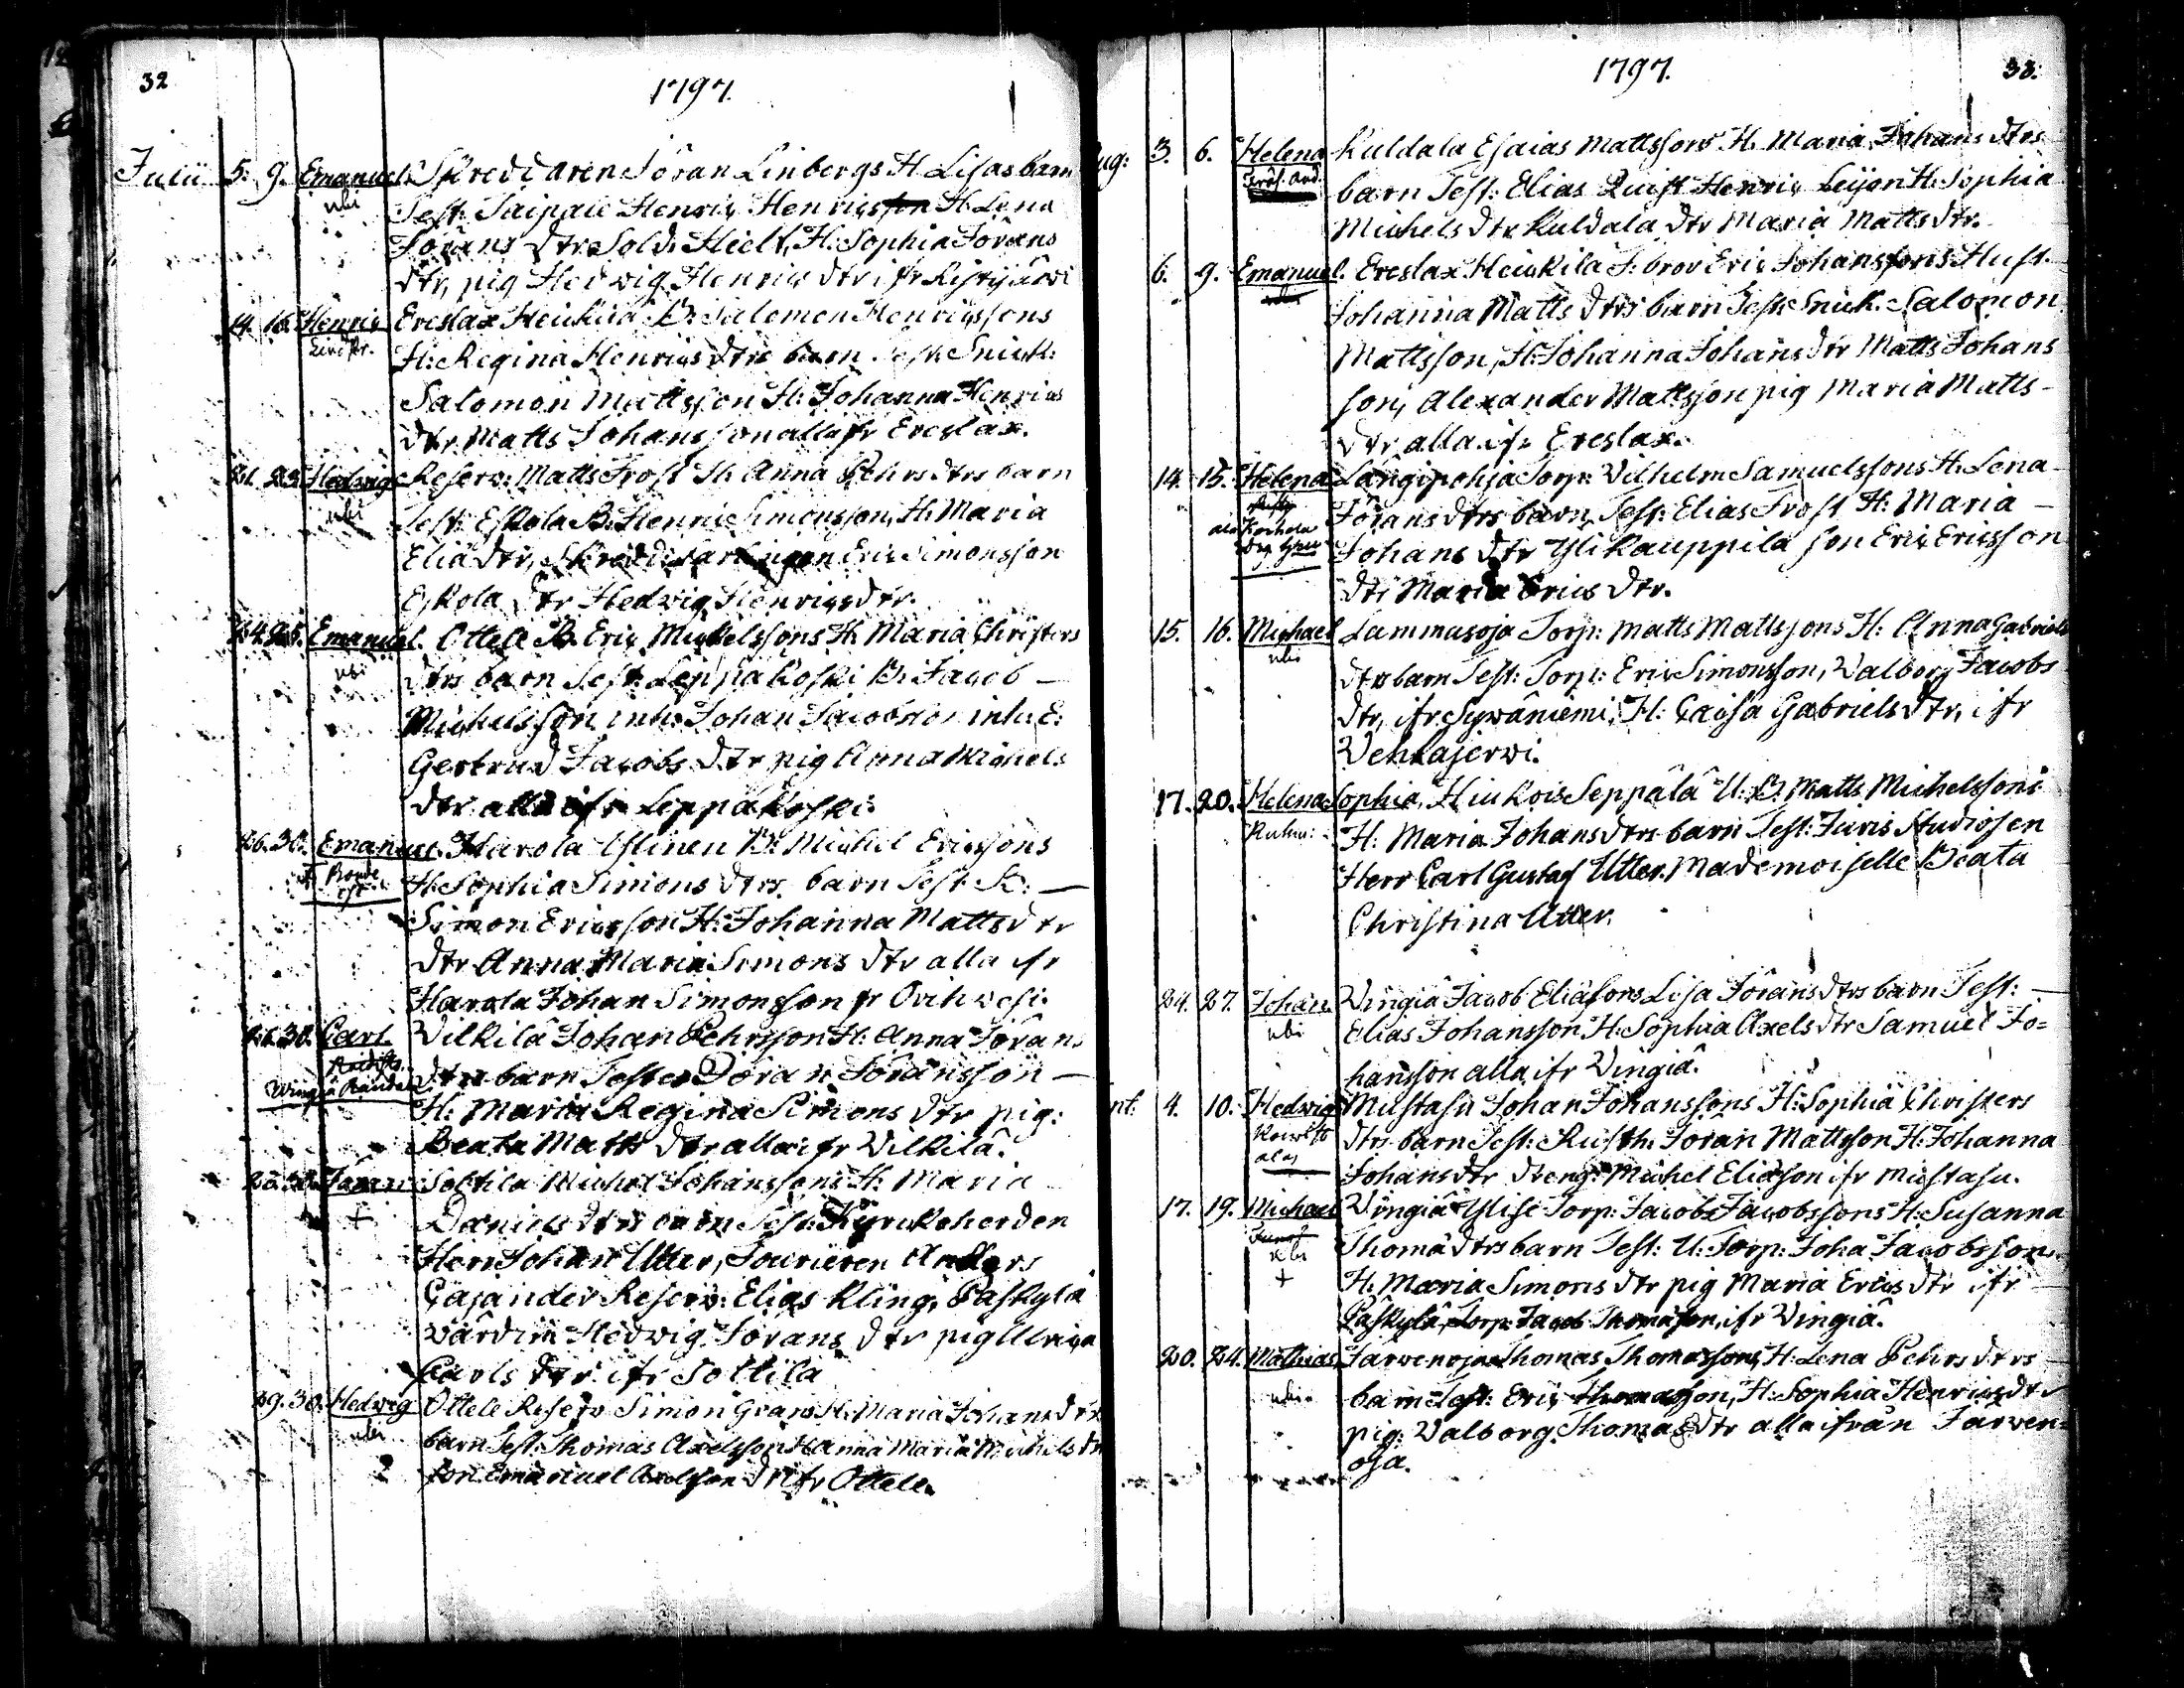 32
1797.
Julii 5. 9. Emanuel. Skreddaren Jöran Linbergs H. Lisas barn
ubi Test: Saipale Henric Henricsson H. Lena
Jörans dtr Sold: Hielt, H: Sophia Jörans
dtr, pig Hedvig Henrics dtr ifr Ristijärvi
14. 16. Henric Ereslax Heickilä B: Salomon Henricssons
H: Regina Henrics dtrs barn Test: Snick:
Salomon Mattsson H: Johanna Henrics
dtr. Matts Johansson alla fr Ereslax.
21. 23. Hedvig Reserv: Matts Frost H. Anna Pehrs dtrs barn
ubi Test: Eskola B. Henric Simonsson, H: Maria
Eliä dtr, Skreddare Eric Simonsson
Eskola dtr Hedvig Henrics dtr.
24. 25. Emanuel. Ottele B. Eric Michelssons H. Maria Christers
ubi dtrs barn Test: Leppäkoski B. Jacob
Michelsson inh: Johan Jacobsson inh: E:
Gertrud Jacobs dtr pig Anna Michels
dtr alla ifr Leppäkoski.
26. 30. Emanuel. Harola Yllinen B: Michel Ericssons
H. Sophia Simons dtrs barn Test: B:
Simon Ericsson H: Johanna Matts dtr
dtr Anna Maria Simons dtr alla ifr
Harola Johan Simonsson fr
26. 30. Carl. Vilkilä Johan Pehrsson H: Anna Jörans
dtrs barn Testes Jöran Jöransson
Wingiä
H: Maria Regina Simons dtr pig:
Beata Matts dtr alla ifr Vilkilä.
Jöran Sottila Michel Johanssons H: Maria
+ Daniels dtrs barn Test: Kyrckoherden
Herr Johan Utter, Fourieren Anders
Cajander Reserv: Elias Kling, Paskylä
värdin Hedvig Jörans dtr pig Ulrica
Carls dtr ifr Sottila
29. 30. Hedvig Ottele Reserv Simon Grans H. Maria Johans dtrs
ubi barn Test: Thomas Axelsson H Anna Maria Michels dtr
son Emanuel Axelsson ifr Ottele.
1797.
33.
Aug: 3. 6. Helena Kuldala Esaias Mattssons H. Maria Johans dtrs
barn Test: Elias Quist Henric Leijon H: Sophia
Michels dtr Kuldala dtr Maria Matts dtr.
6. 9. Emanuel. Ereslax Heickilä Eric Johanssons Hust.
Johanna Matts dtrs barn Test: Snick. Salomon
Mattsson, H: Johanna Johans dtr Matts Johans
son, Alexander Mattsson pig Maria Matts-
dtr alla ifr Ereslax.
14. 15. Helena Långinohja Torp: Vilhelm Samuelssons H. Lena
Jörans dtrs barn, Test: Elias Frost H: Maria
Johans dtr Ylikauppila son Eric Ericsson
dtr Maria Erics dtr.
15. 16. Michael Lammasoja Torp: Matts Mattssons H: Anna Gabriels
ubi dtrs barn Test: Torp: Eric Simonsson, Valborg Jacobs
dtr, ifr Sywäniemi, H: Caisa Gabriels dtr, ifr
Vehkajerwi.
17. 20. Helena Sophia, Hiukois Seppälä U: B: Matts Michelssons
H: Maria Johans dtrs barn Test: Juris Studiosen
Herr Carl Gustaf Utter. Mademoiselle Beata
Christina Utter.
24. 27. Johan Vingiä Jacob Eliäsons Lisa Jörans dtrs barn Test:
ubi Elias Johansson H: Sophia Axels dtr Samuel Jo=
hansson alla ifr Vingiä.
4. 10. Hedvig Mustasu Johan Johanssons H: Sophia Christers
dtrs barn Test: Rusth: Jöran Mattsson H: Johanna
Johans dtr dreng: Michel Eliäson ifr Mustasu.
17. 19. Michael Vingiä Ylise Torp: Jacob Jacobssons H: Susanna
ubi Thomä dtrs barn Test: U: Torp: Joha Jacobsson
+ H: Maria Simons dtr pig Maria Erics dtr ifr
Paskylä, Torp: Jacob Thomäson, ifr Vingiä.
20. 24. Mathias Järvenoja Thomas Thomassons, H: Lena Pehrs dtrs
ubi barn Test: Eric Thomasson, H: Sophia Henrics dtr
pig: Valborg Thomas dtr alla ifrån Järven=
oja.